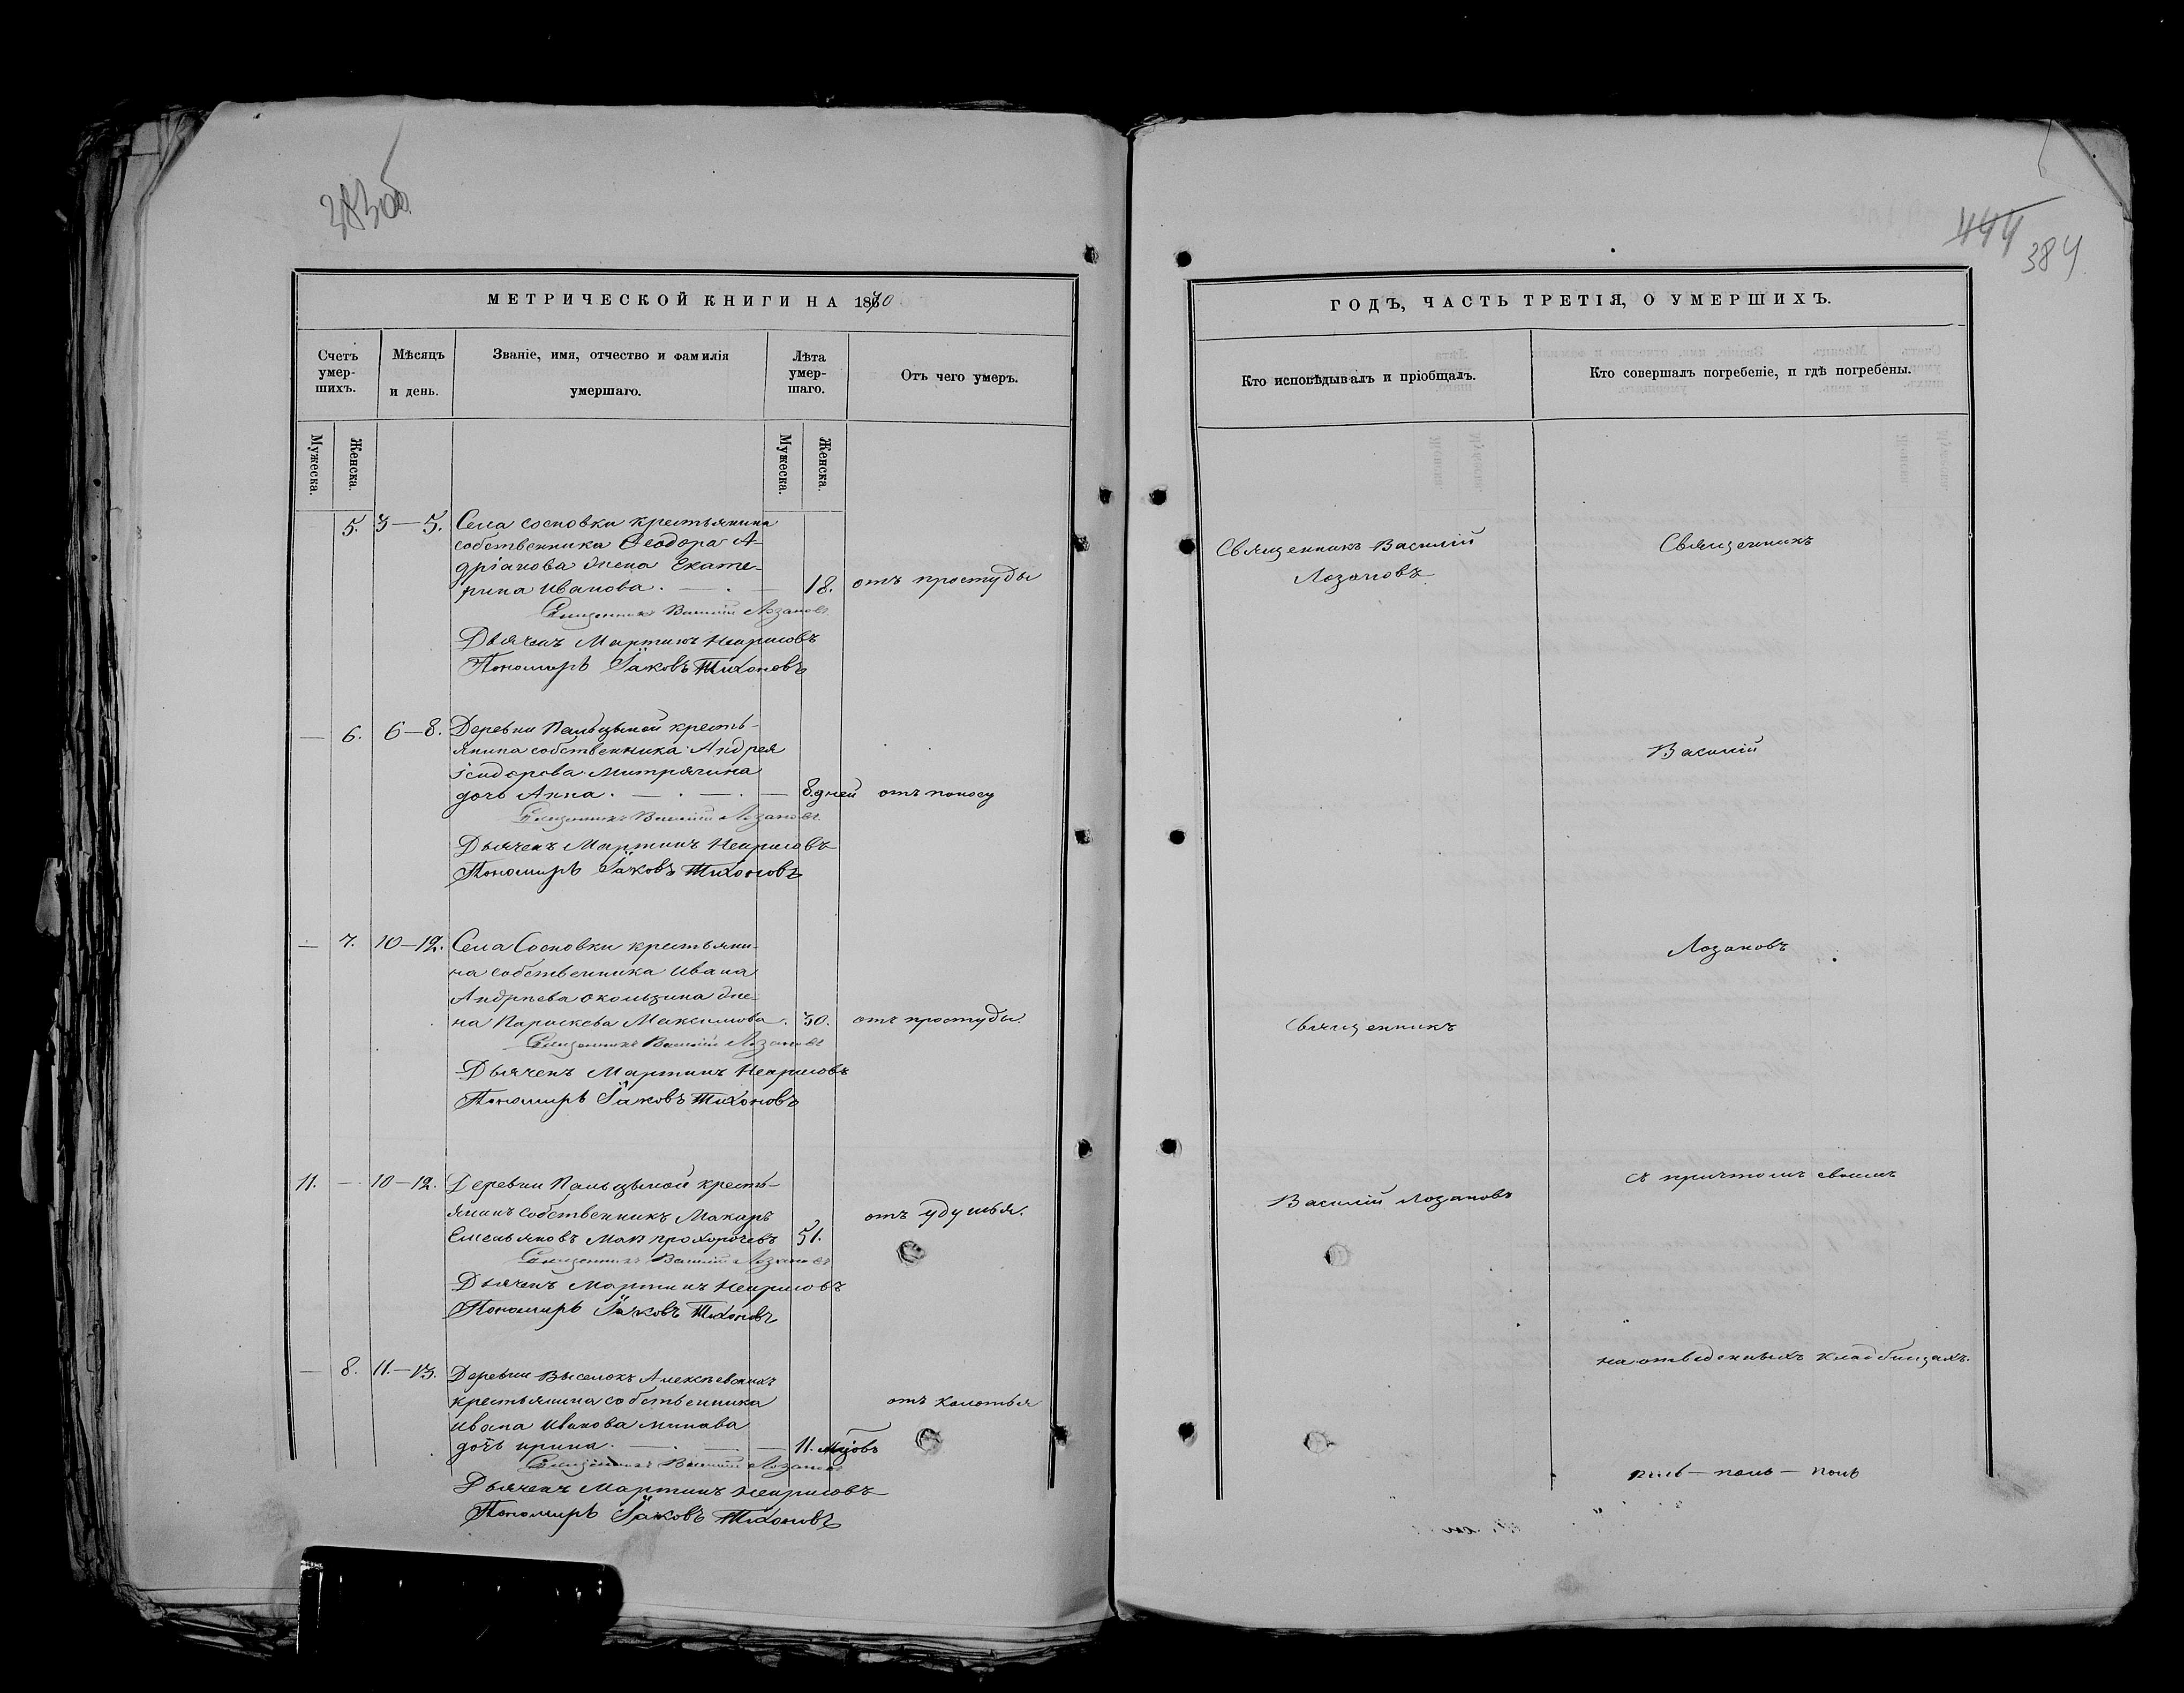 383об
444
384
МЕТРИЧЕСКОЙ КНИГИ НА 1870
Счетъ умер-шихъ.
Мѣсяцъ и день.
Званіе, имя, отчество и фамилія умершаго.
Лѣта умер-шаго.
Отъ чего умеръ.
Мужеска.
Женска.
Мужеска.
Женска.
5. 3—5. Села Сосновки крестьянина
собственника Ѳеодора А-
дріанова жена Екате-
рина Иванова. — . — 18. отъ простуды
Священникъ Василій Лозановъ
Дьячекъ Мартинъ
Пономарь Іаковъ Тихоновъ
— 6. 6—8. Деревни Пальцыной кресть-
янина собственника Андрея
Ісидорова Митрячина
дочь Анна. — . — . — 8. дней отъ поносу
Священникъ Василій Лозановъ
Дьячекъ Мартинъ
Пономарь Іаковъ Тихоновъ
— 7. 10—12. Села Сосновки крестьяни-
на собственника Ивана
Андрѣева жe-
на Параскева Максимова. 30. отъ простуды.
Священникъ Василій Лозановъ
Дьячекъ Мартинъ
Пономарь Іаковъ Тихоновъ
11. — 10—12. Деревни Пальцыной кресть-
янинъ собственникъ Макаръ
Емельяновъ 51. отъ удушья.
Священникъ Василій Лозановъ
Дьячекъ Мартинъ
Пономарь Іаковъ Тихоновъ
— 8. 11.—13. Деревни Выселокъ Алексѣевскихъ
крестьянина собственника отъ колотья
Ивана Иванова Минава
дочь Ирина. — . — — 11. мцовъ
Священникъ Василій Лозановъ
Дьячекъ Мартинъ
Пономарь Іаковъ Тихоновъ
ГОДЪ, ЧАСТЬ ТРЕТІЯ, О УМЕРШИХЪ.
Кто исповѣдывалъ и пріобщалъ.
Кто совершалъ погребеніе, и гдѣ погребены.
Священникъ Василій
Лозановъ
Священникъ
Василій Лозановъ
Священникъ
Василій
Лозановъ
съ причтомъ своимъ
на отведенныхъ кладбищахъ.